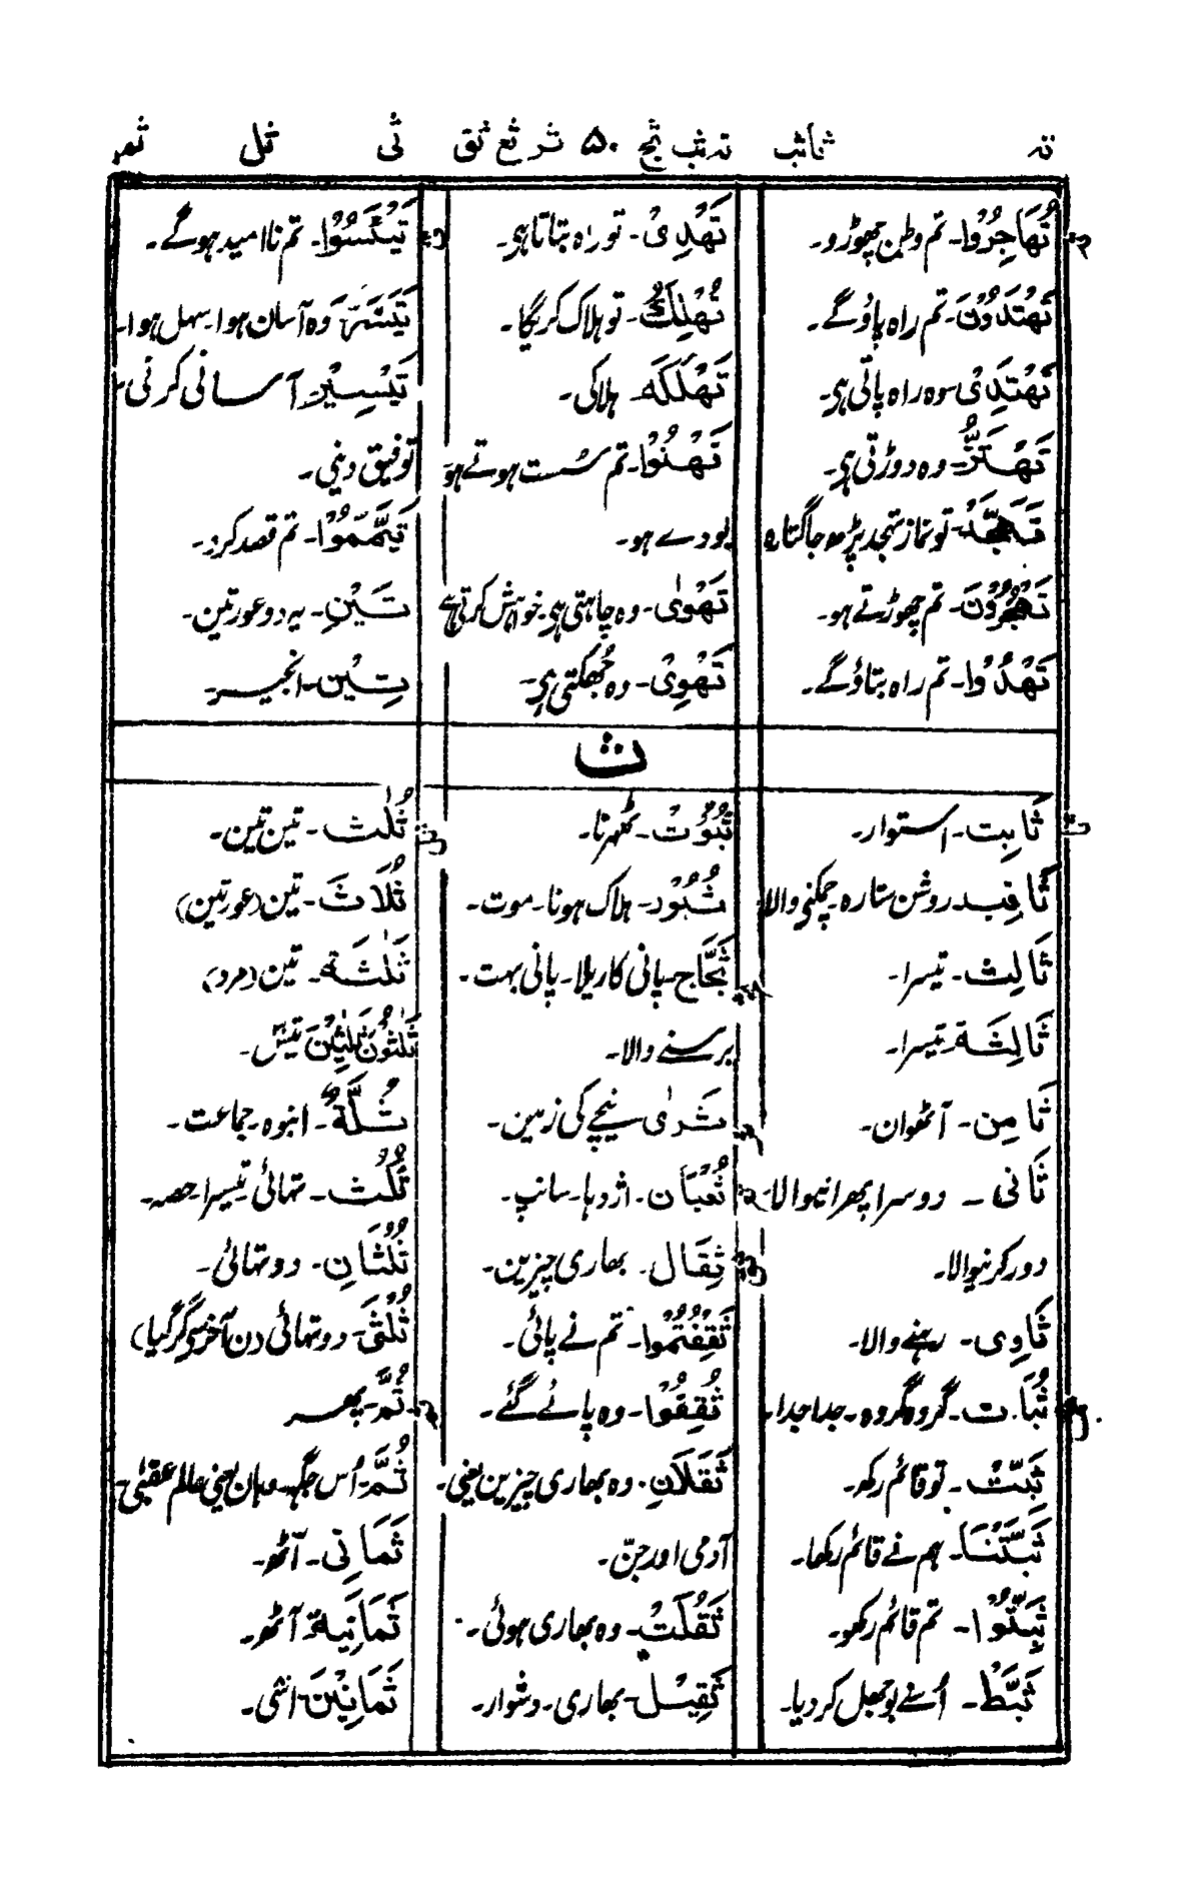 ته ثا ثب ته ثب ثج ۵۰ ثر ثع ثق ثی ثل ثم
تُهَاجِرُوْا۔ تم وطن چھوڑو۔
تَهْتَدُوْنَ۔ تم راہ پاؤگے۔
تَهْتَدِیْ۔ وہ راہ پاتی ہی۔
تَهْتَزُّ۔ وہ دوڑتی ہی۔
تَهَجَّدْ۔ تو نماز تہجد پڑھ جاگتا رہ
تَهْجُرُوْنَ۔ تم چھوڑتے ہو۔
تَهْدُوْا۔ تم راہ بتاؤگے۔
تَهْدِیْ۔ تو راہ بتاتا ہی۔
تُهْلِكُ۔ تو ہلاک کریگا۔
تَهْلُكَه۔ ہلاکی۔
تَهِنُوْا۔ تم سُست ہوتے ہو
بودے ہو۔
تَهْوٰی۔ وہ چاہتی ہی۔ خواہش کرتی ہے
تَهْوِیْ۔ وہ جُھکتی ہی۔
تَيْئَسُوْا۔ تم ناامید ہوگے۔
تَيَسَّرَ۔ وہ آسان ہوا۔ سہل ہوا۔
تَيْسِيْر۔ آسانی کرنی۔
توفیق دینی۔
تَيَمَّمُوْا۔ تم قصد کرو۔
تَيْنِ۔ یہ دو عورتین۔
تِيْن۔ انجیر۔
ث
ثَابِت۔ استوار۔
ثَاقِب۔ روشن ستارہ۔ چمکنے والا۔
ثَالِث۔ تیسرا۔
ثَالِثَة۔ تیسرا۔
ثَامِن۔ آٹھوان۔
ثَانی۔ دوسرا پھرانیوالا۔
دور کرنیوالا۔
ثَاوِی۔ رہنے والا۔
ثُبَات۔ گروہ گروہ۔ جدا جدا۔
ثَبِّتْ۔ تو قائم رکھ۔
ثَبَّتْنَا۔ ہم نے قائم رکھا۔
ثَبِّتُوْا۔ تم قائم رکھو۔
ثَبَّطَ۔ اُسنے بوجھل کر دیا۔
ثُبُوْت۔ ٹھہرنا۔
ثُبُوْر۔ ہلاک ہونا۔ موت۔
ثَجَّاج۔ پانی کا ریلا۔ پانی بہت۔
برسنے والا۔
ثَرٰی نیچے کی زمین۔
ثُعْبَان۔ اژدہا۔ سانپ۔
ثِقَال۔ بھاری چیزین۔
ثَقِفْتُمُوْا۔ تم نے پائی۔
ثُقِفُوْا۔ وہ پائے گئے۔
ثَقَلَانِ۔ وہ بھاری چیزین یعنی۔
آدمی اور جنّ۔
ثَقُلَتْ۔ وہ بھاری ہوئی۔
ثَقِيْل۔ بھاری۔ دشوار۔
ثُلٰث۔ تین تین۔
ثَلَاثَ۔ تین (عورتین)
ثَلٰثَة۔ تین (مرد)
ثَلٰثُوْنَ ثَلٰثِيْنَ تیس۔
ثُلَّةٌ۔ انبوہ۔ جماعت۔
ثُلُث۔ تہائی تیسرا حصہ۔
ثُلُثَانِ۔ دو تہائی۔
ثُلُثَیْ۔ دو تہائی (ن آخر سے گر گیا)
ثُمَّ۔ پھر
ثَمَّ۔ اُس جگہ۔ وہان یعنی عالم عقبٰی۔
ثَمَانِی۔ آٹھ۔
ثَمَانِيَة۔ آٹھ۔
ثَمَانِيْنَ۔ اسّی۔